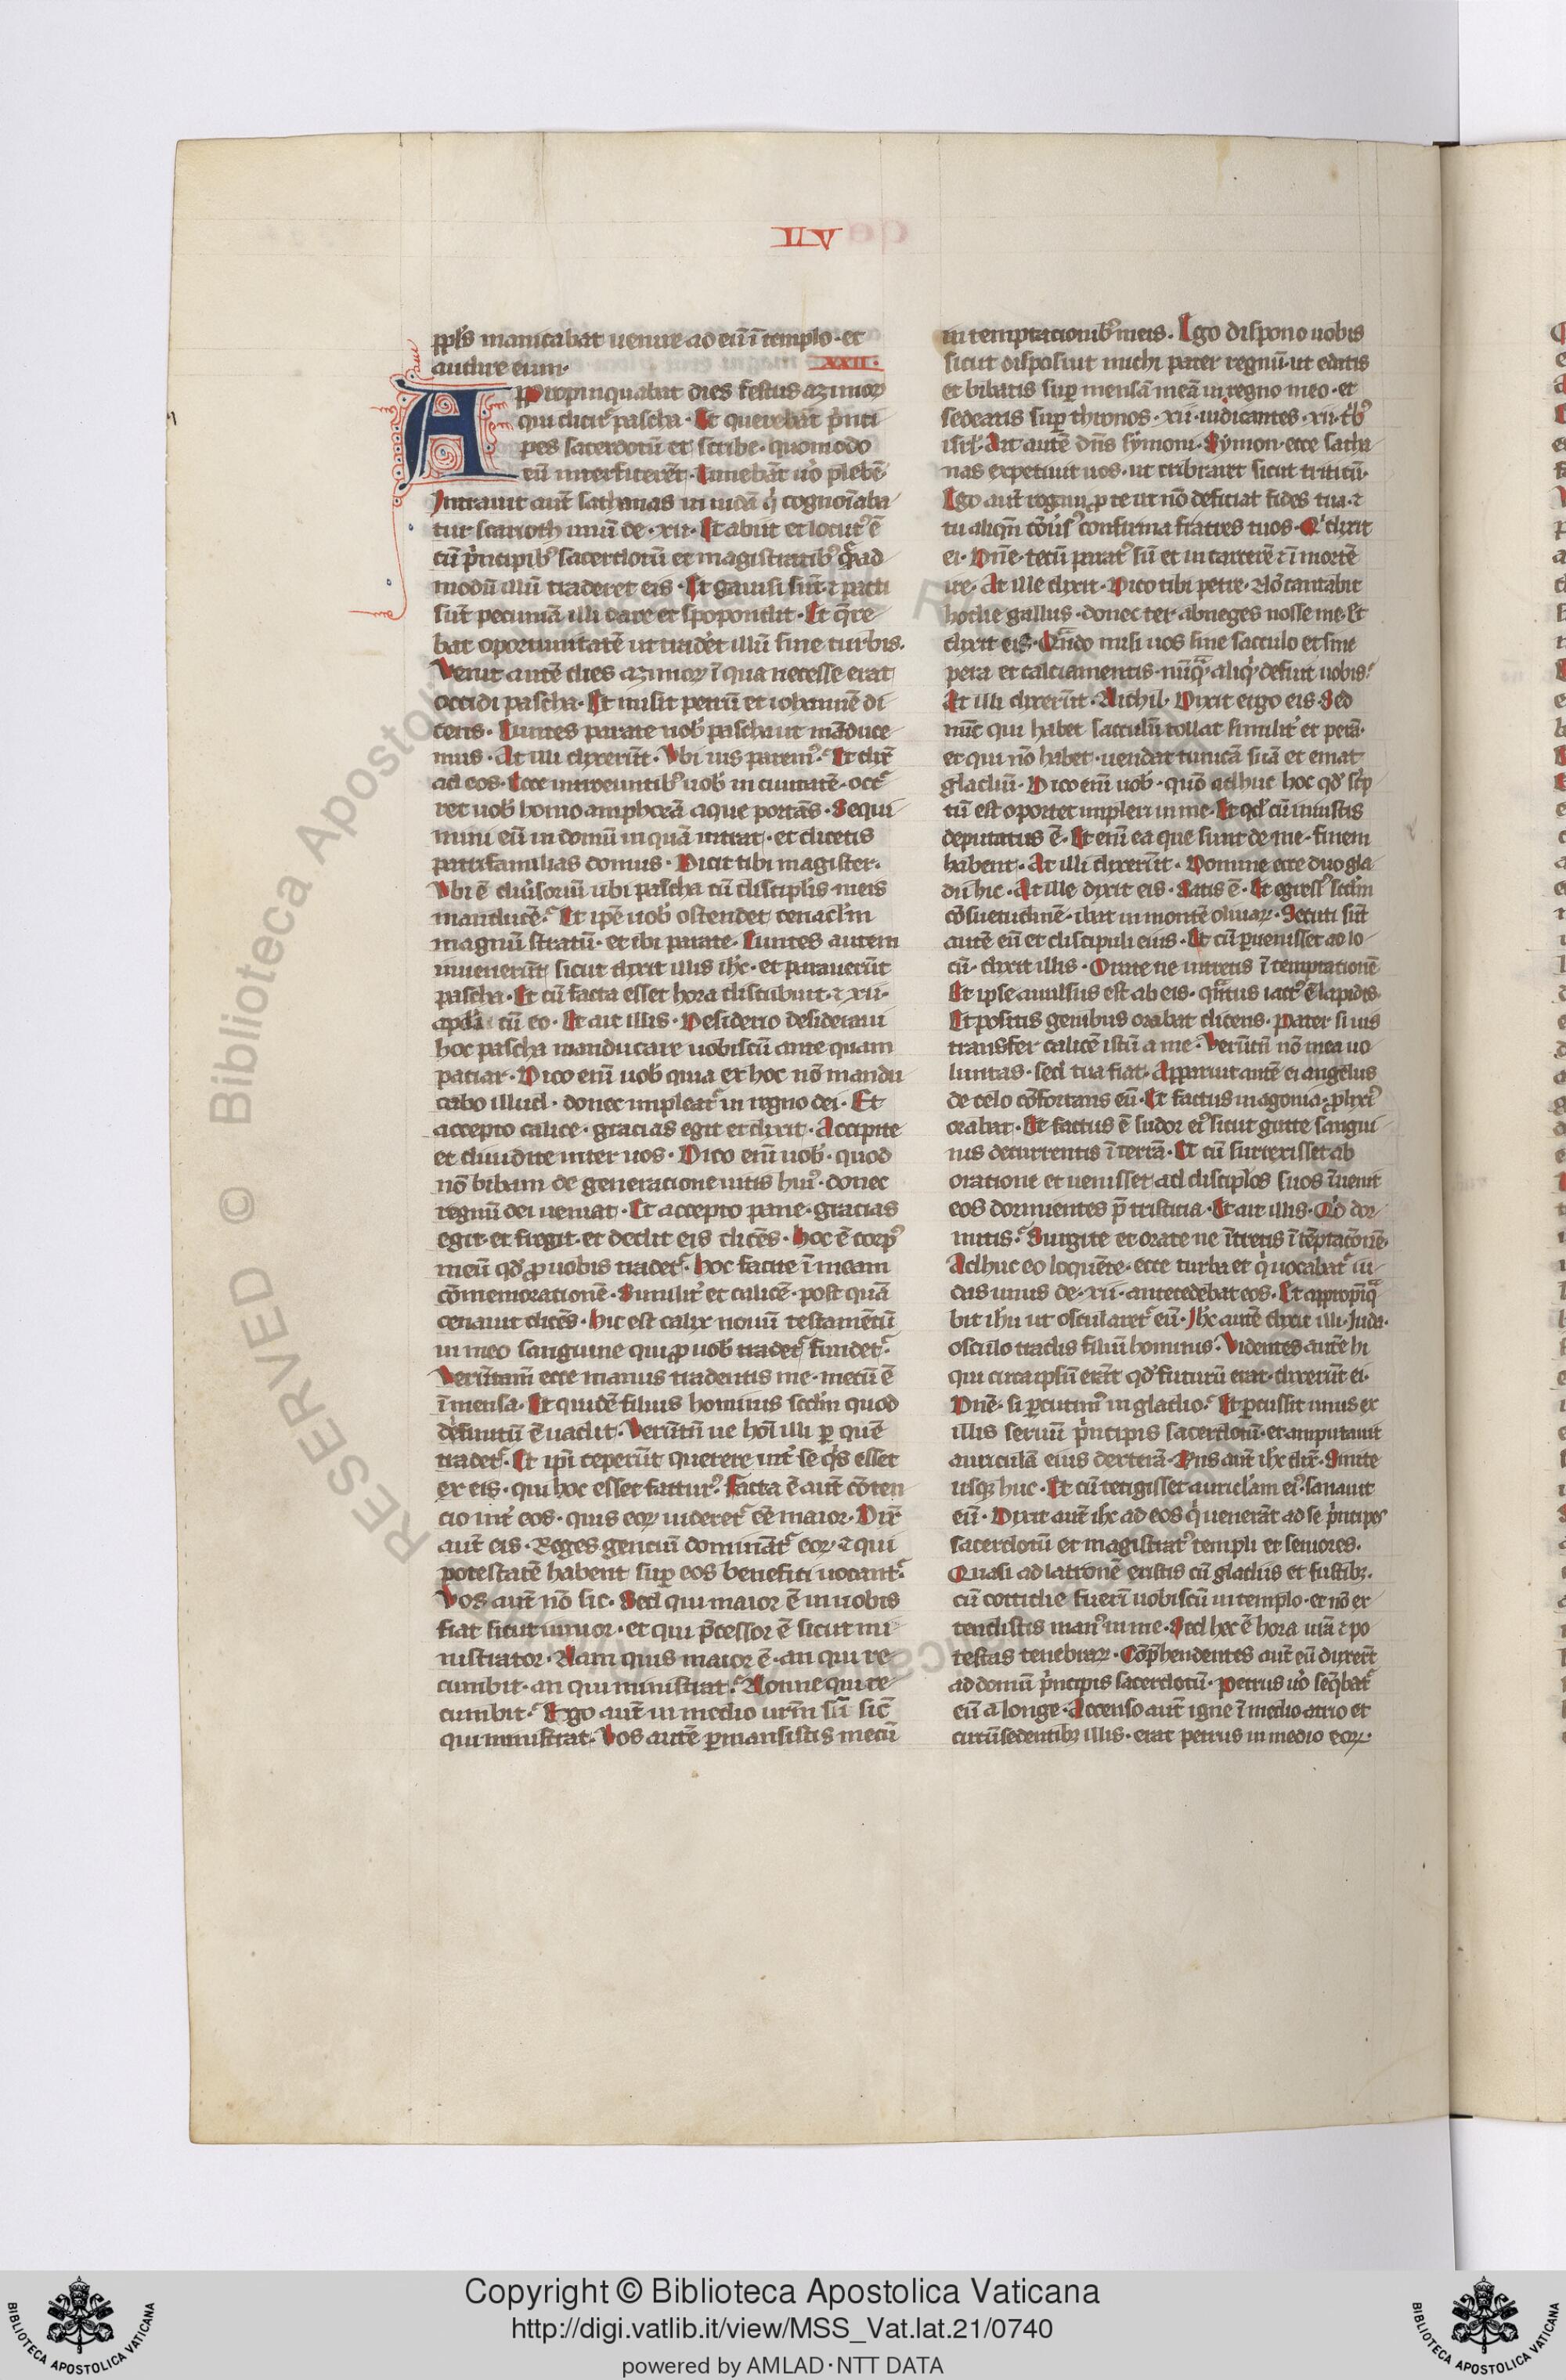 LV
pp̃ls manicabat uenire ad eũ ĩ templo · et
audire eum ·
XXII ·
APpropinquabat dies festus azimoꝝ
qui dicit᷑ pascha · Et querebãt p̃nci
pes sacerdotũ et scribe · quomodo
eũ interficerẽt · Timebãt uo᷑ plebẽ ·
Intrauit aut̃ sathanas in iudã q̇ cognoĩaba
tur scarioth unũ de · xii · Et abiit et locut᷒ ẽ
cũ p̃ncipib᷒ sacerdotũ et magistratib᷒ quẽad
modũ illũ traderet eis · Et gauisi sũt · ⁊ pacti
sũt pecuniã illi dare et spopondit · Et q̃re
bat oportunitatẽ ut trad̃et illũ sine turbis ·
Venit autẽ dies azimoꝝ ĩ qua necesse erat
occidi pascha · Et misit petrũ et iohannẽ di
cens · Euntes parate nob̃ pascha ut mãduce
mus · At illi dixerũt · Vbi uis parem᷒ · Et dix̃
ad eos · Ecce introeuntib᷒ uob̃ in ciuitatẽ · occ᷑
ret uob̃ homo amphorã aque portãs · Sequi
mini eũ in domũ in quã intrat · et dicetis
patrifamilias domus · Dicit tibi magister ·
Vbi ẽ diu᷑soriũ ubi pascha cũ discipl̃is meis
manducẽ · Et ip̃e uob̃ ostendet cenacl̃m
magnũ stratũ · et ibi parate · Euntes autem
inuenerũt sicut dixit illis ih̃c · et parauerũt
pascha · Et cũ facta esset hora discubuit · ⁊ xii ·
apl̃i cũ eo · Et ait illis · Desiderio desideraui
hoc pascha manducare uobiscũ ante quam
patiar · Dico enĩ uob̃ quia ex hoc nõ mandu
cabo illud · donec impleat᷑ in regno dei · Et
accepto calice · gracias egit et dixit · Accipite
et diuidite inter uos · Dico enĩ uob̃ · quod
nõ bibam de generacione uitis hui᷒ · donec
regnũ dei ueniat · Et accepto pane · gracias
egit · et fregit · et dedit eis dicẽs · Hoc ẽ corp᷒
meũ qd̃ ꝓ uobis tradet᷑ · hoc facite ĩ meam
cõmemorationẽ · Similit᷑ et calicẽ · post quã
cenauit dicẽs · Hic est calix nouũ testamẽtũ
in meo sanguine qui ꝓ uob̃ tradet᷑ fundet᷑ ·
Verũtam̃ ecce manus tradentis me · mecũ ẽ
ĩ mensa · Et quidẽ filius hominis scd̃m quod
definitũ ẽ uadit · Verũtñ ue hoĩ illi ꝑ quẽ
tradet᷑ · Et ip̃i ceperũt querere int᷑ se q̇s esset
ex eis · qui hoc esset factur᷒ · Facta ẽ aut̃ cõten
cio int᷑ eos · quis eoꝝ uideret᷑ eẽ maior · Dix̃
aut̃ eis · Reges genciũ dominãt᷑ eoꝝ · ⁊ qui
potestatẽ habent suꝑ eos benefici uocant᷑ ·
Vos aut̃ nõ sic · Sed qui maior ẽ in uobis
fiat sicut iunior · et qui p̃cessor ẽ sicut mi
nistrator · Nam quis maior ẽ · an qui re
cumbit · an qui ministrat · Nonne qui re
cumbit · Ego aut̃ in medio ur̃m sũ sic̃
qui ministrat · Vos autẽ ꝑmansistis mecũ
in temptacionib᷒ meis · Ego dispono uobis
sicut disposuit michi pater regnũ · ut edatis
et bibatis suꝑ mensã meã in regno meo · et
sedeatis suꝑ thronos · xii · iudicantes · xii · tb᷒
isrl̃ · Ait autẽ dñs symoni · Symon · ecce satha
nas expetiuit uos · ut cribraret sicut triticũ ·
Ego aut̃ rogaui ꝓ te ut nõ deficiat fides tua · ⁊
tu aliqñ cõu᷑s᷒ confirma fratres tuos · Q̇ dixit
ei · Dñe · tecũ parat᷒ sũ et in carcerẽ ⁊ ĩ mortẽ
ire · At ille dixit · Dico tibi petre · Nõ cantabit
hodie gallus · donec ter abneges nosse me · Et
dixit eis · Qñdo misi uos sine sacculo et sine
pera et calciamentis · nũqᷓ aliq̇ defuit uobis ·
At illi dixerũt · Nichil · Dixit ergo eis · Sed
nũc qui habet sacculũ tollat similit᷑ et perã ·
et qui nõ habet · uendat tunicã suã et emat
gladiũ · Dico enĩ uob̃ · quõ adhuc hoc qd̃ sc̃p
tũ est oportet impleri in me · Et qd̃ cũ iniustis
deputatus ẽ · Et enĩ ea que sunt de me · finem
habent · At illi dixerũt · Domine ecce duo gla
dii hic · At ille dixit eis · Satis ẽ · Et egress᷒ scd̃m
cõsuetudinẽ · ibat in montẽ oliuaꝝ · Secuti sũt
autẽ eũ et discipuli eius · Et cũ ꝑuenisset ad lo
cũ · dixit illis · Orate ne intretis ĩ temptationẽ
Et ipse auulsus est ab eis · qñtus iact᷒ ẽ lapidis ·
Et positis genibus orabat dicens · Pater si uis
transfer calicẽ istũ a me · Verũtñ nõ mea uo
luntas · sed tua fiat · Apparuit autẽ ei angelus
de celo cõfortans eũ · Et factus in agonia · ꝓlixi᷒
orabat · Et factus ẽ sudor ei᷒ sicut gutte sangui
nis decurrentis ĩ terrã · Et cũ surrexisset ab
oratione et uenisset ad discipl̃os suos ĩuenit
eos dormientes p̃ tristicia · Et ait illis · Qd̃ dor
mitis · Surgite et orate ne ĩtretis ĩ tẽptacõnẽ ·
Adhuc eo loquẽte · ecce turba et q̇ uocabat᷑ iu
das unus de · xii · antecedebat eos · Et appropĩqᷓ
bit ih̃u ut oscularet᷑ eũ · Ih̃c autẽ dixit illi · Iuda ·
osculo tradis filiũ hominis · Videntes autẽ hi
qui circa ipsũ erãt qd̃ futurũ erat · dixerũt ei ·
Dñe · si ꝑcutim᷒ in gladio · Et ꝑcussit unus ex
illis seruũ p̃ncipis sacerdotũ · et amputauit
auriculã eius dexterã · Rñs aut̃ ih̃c dix̃ · Sinite
usqꝫ huc · Et cũ tetigisset auricl̃am ei᷒ · sanauit
eũ · Dixit aut̃ ih̃c ad eos q̇ uenerãt ad se p̃ncipes
sacerdotũ et magistrat᷒ templi et seniores ·
Quasi ad latronẽ existis cũ gladiis et fustibꝫ ·
cũ cottidie fuerĩ uobiscũ in templo · et nõ ex
tendistis man᷒ in me · Sed hec ẽ hora ur̃a ⁊ po
testas tenebraꝝ · Cõp̃hendentes aut̃ eũ duxerũt
ad domũ p̃ncipis sacerdotũ · Petrus uo᷑ seq̃bat᷑
eũ a longe · Accenso aut̃ igne ĩ medio atrio et
circũsedentibꝫ illis · erat petrus in medio eoꝝ ·
RESERVED © Biblioteca Apostolica
Copyright © Biblioteca Apostolica Vaticana
http://digi.vatlib.it/view/MSS_Vat.lat.21/0740
powered by AMLAD·NTT DATA
BIBLIOTECA APOSTOLICA VATICANA
BIBLIOTECA APOSTOLICA VATICANA